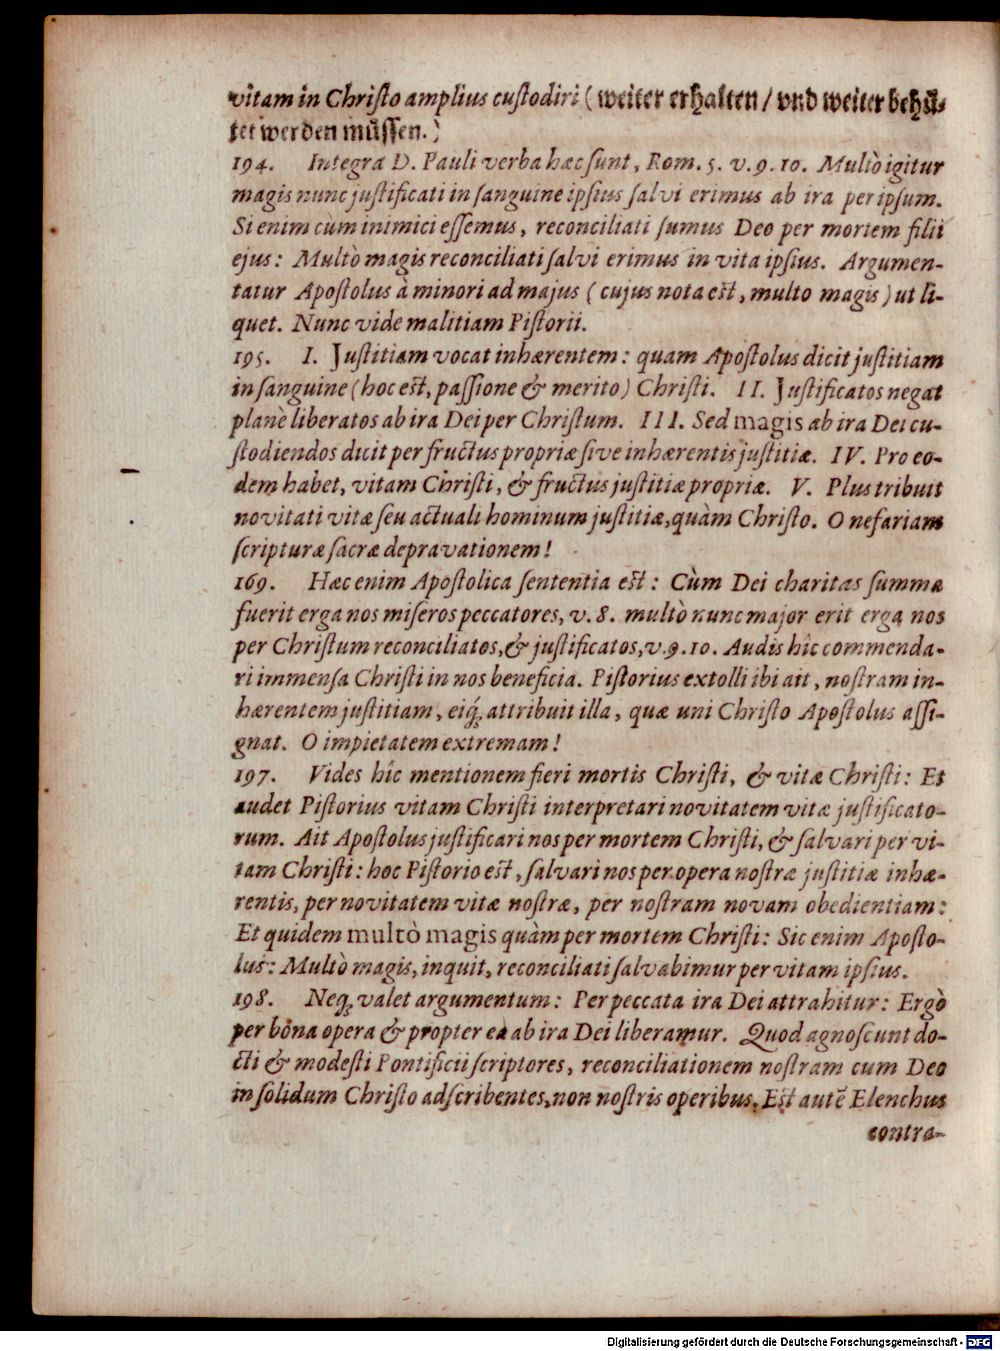 vitam in Christo amplius custodiri (weiter erhalten / vnd weiter behüͤ-
tet werden müͤssen.)
194. Integra D. Pauli verba hæc sunt, Rom. 5. v. 9. 10. Multò igitur
magis nunc justificati in sanguine ipsius salvi erimus ab ira per ipsum.
Si enim cùm inimici essemus, reconciliati sumus Deo per mortem filii
ejus: Multò magis reconciliati salvi erimus in vita ipsius. Argumen-
tatur Apostolus à minori ad majus (cujus nota est, multo magis) ut li-
quet. Nunc vide malitiam Pistorii.
195. I. Justitiam vocat inhærentem: quam Apostolus dicit justitiam
in sanguine (hoc est, passione & merito) Christi. II. Justificatos negat
planè liberatos ab ira Dei per Christum. III. Sed magis ab ira Dei cu-
stodiendos dicit per fructus propriæ sive inhærentis justitiæ. IV. Pro eo-
dem habet, vitam Christi, & fructus justitiæ propriæ. V. Plus tribuit
novitati vitæ seu actuali hominum justitiæ, quàm Christo. O nefariam
scripturæ sacræ depravationem!
169. Hæc enim Apostolica sententia est: Cùm Dei charitas summa
fuerit erga nos miseros peccatores, v. 8. multò nunc major erit erga nos
per Christum reconciliatos, & justificatos, v. 9. 10. Audis hîc commenda-
ri immensa Christi in nos beneficia. Pistorius extolli ibi ait, nostram in-
hærentem justitiam, eiq́; attribuit illa, quæ uni Christo Apostolus assi-
gnat. O impietatem extremam!
197. Vides hîc mentionem fieri mortis Christi, & vitæ Christi: Et
audet Pistorius vitam Christi interpretari novitatem vitæ justificato-
rum. Ait Apostolus justificari nos per mortem Christi, & salvari per vi-
tam Christi: hoc Pistorio est, salvari nos per opera nostræ justitiæ inhæ-
rentis, per novitatem vitæ nostræ, per nostram novam obedientiam:
Et quidem multò magis quàm per mortem Christi: Sic enim Aposto-
lus: Multò magis, inquit, reconciliati salvabimur per vitam ipsius.
198. Neq; valet argumentum: Per peccata ira Dei attrahitur: Ergò
per bona opera & propter ea ab ira Dei liberamur. Quod agnoscunt do-
cti & modesti Pontificii scriptores, reconciliationem nostram cum Deo
in solidum Christo adscribentes, non nostris operibus. Est autē Elenchus
contra-
Digitalisierung gefördert durch die Deutsche Forschungsgemeinschaft - DFG